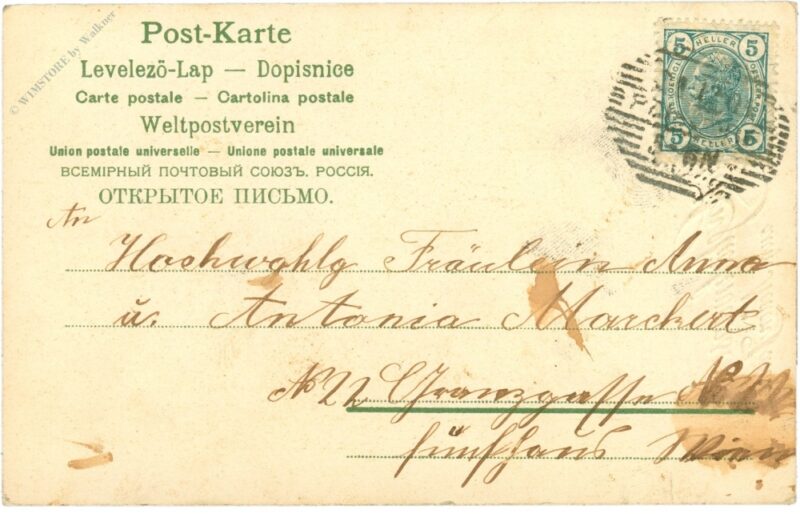 © WIMSTORE by Walkner
Post-Karte
Levelező-Lap — Dopisnice
Carte postale — Cartolina postale
Weltpostverein
Union postale universelle — Unione postale universale
ВСЕМІРНЫЙ ПОЧТОВЫЙ СОЮЗЪ. РОССІЯ.
ОТКРЫТОЕ ПИСЬМО.
5 HELLER 5
5 HELLER 5
An
Hochwohlg Fräulein Anna
u. Antonia Marckert
No 22 Granzgasse No 22
fünfhaus Wien